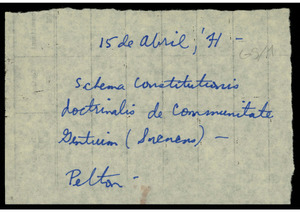 15 de Abril, '71 -
Schema constitutionis
doctrinalis de Communitate
Gentium (Suenens) -
Pelton -